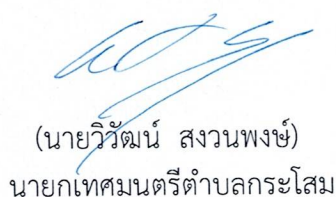 (นายวิวัฒน์ สงวนพงษ์)
นายกเทศมนตรีตำบลกระโสม